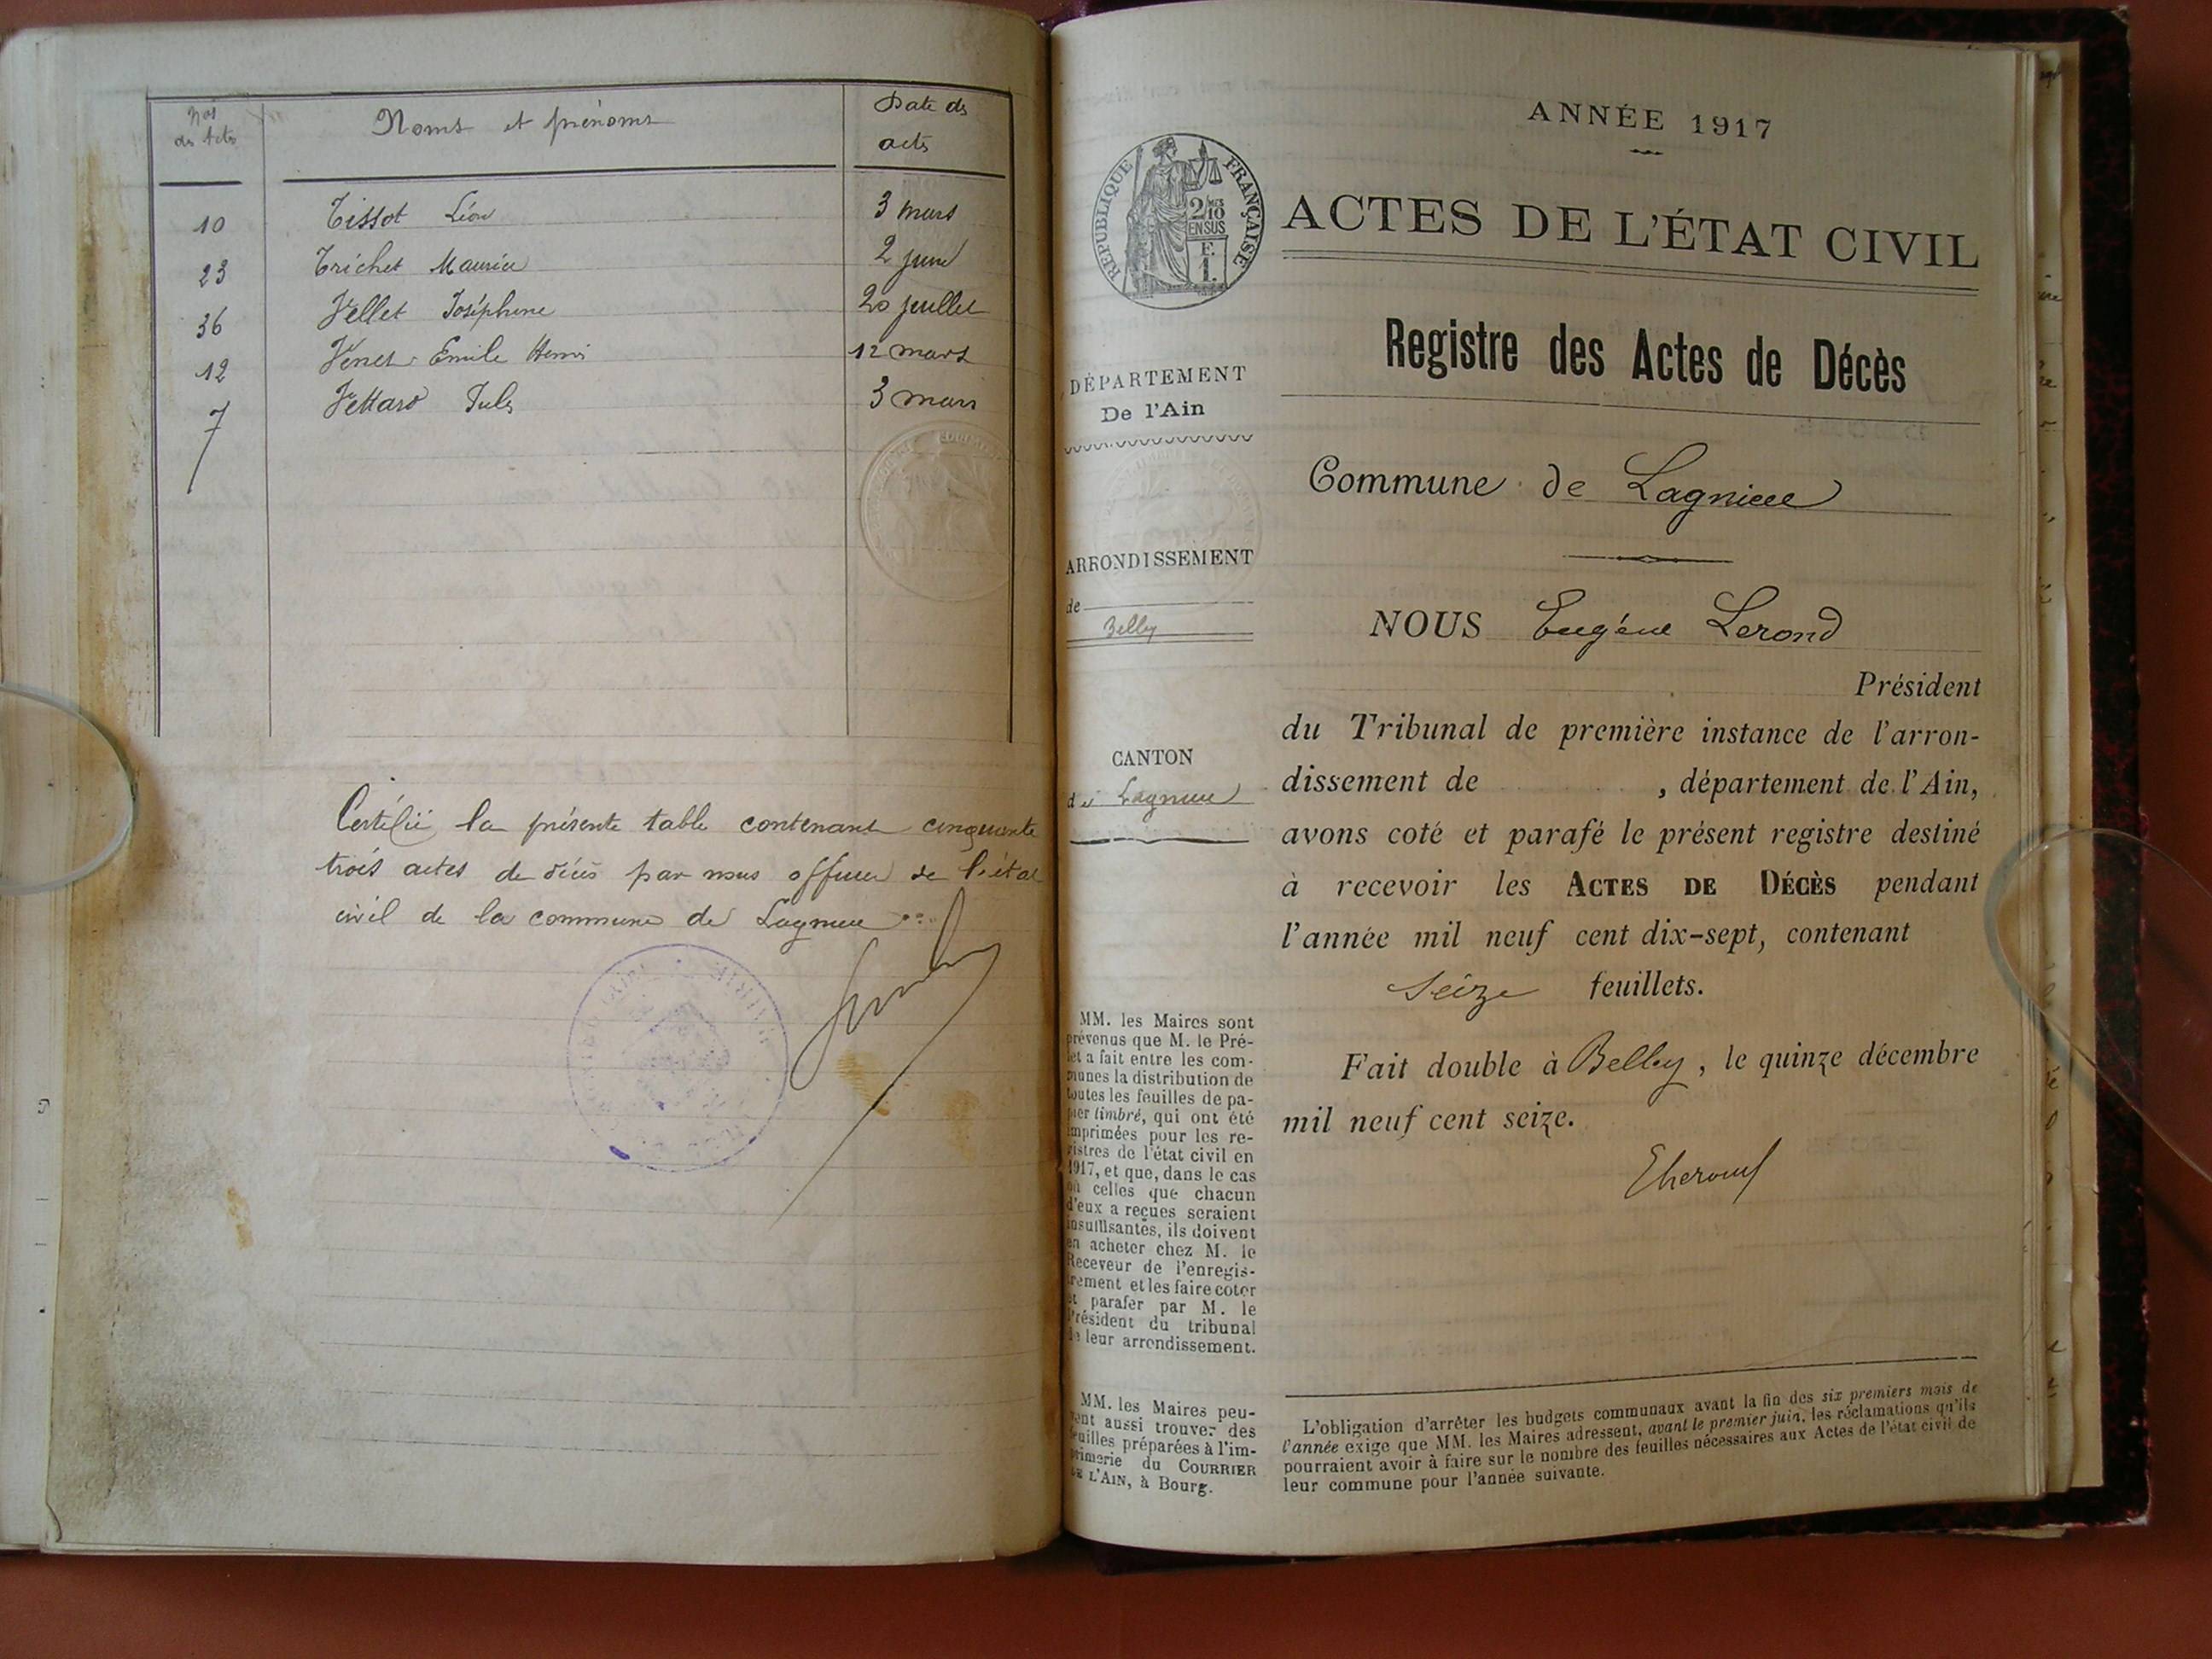 Nos
des Actes
Noms et prénoms
Date des
actes
10 Tissot Léon 3 mars
23 Trichet Maurice 2 juin
36 Vellet Joséphine 20 juillet
12 Venet Emile Henri 12 mars
7 Vettard Jules 3 mars
Certifié la présente table contenant cinquante
trois actes de décès par nous officier de l'état
civil de la commune de Lagnieu
ANNÉE 1917
RÉPUBLIQUE FRANÇAISE
2/10
EN SUS
E.
1.
ACTES DE L'ÉTAT CIVIL
Registre des Actes de Décès
DÉPARTEMENT
De l'Ain
Commune de Lagnieu
ARRONDISSEMENT
de
Belley
NOUS Eugène Lerond
Président
du Tribunal de première instance de l'arron-
dissement de , département de l'Ain,
avons coté et parafé le présent registre destiné
à recevoir les ACTES DE DÉCÈS pendant
l'année mil neuf cent dix-sept, contenant
seize feuillets.
Fait double à Belley, le quinze décembre
mil neuf cent seize.
CANTON
de Lagnieu
MM. les Maires sont
prévenus que M. le Pré-
fet a fait entre les com-
munes la distribution de
toutes les feuilles de pa-
pier timbré, qui ont été
imprimées pour les re-
gistres de l'état civil en
1917, et que, dans le cas
où celles que chacun
d'eux a reçues seraient
insuffisantes, ils doivent
en acheter chez M. le
Receveur de l'enregis-
trement et les faire coter
et parafer par M. le
Président du tribunal
de leur arrondissement.
MM. les Maires peu-
vent aussi trouver des
feuilles préparées à l'im-
primerie du COURRIER
DE L'AIN, à Bourg.
L'obligation d'arrêter les budgets communaux avant la fin des six premiers mois de
l'année exige que MM. les Maires adressent, avant le premier juin, les réclamations qu'ils
pourraient avoir à faire sur le nombre des feuilles nécessaires aux Actes de l'état civil de
leur commune pour l'année suivante.